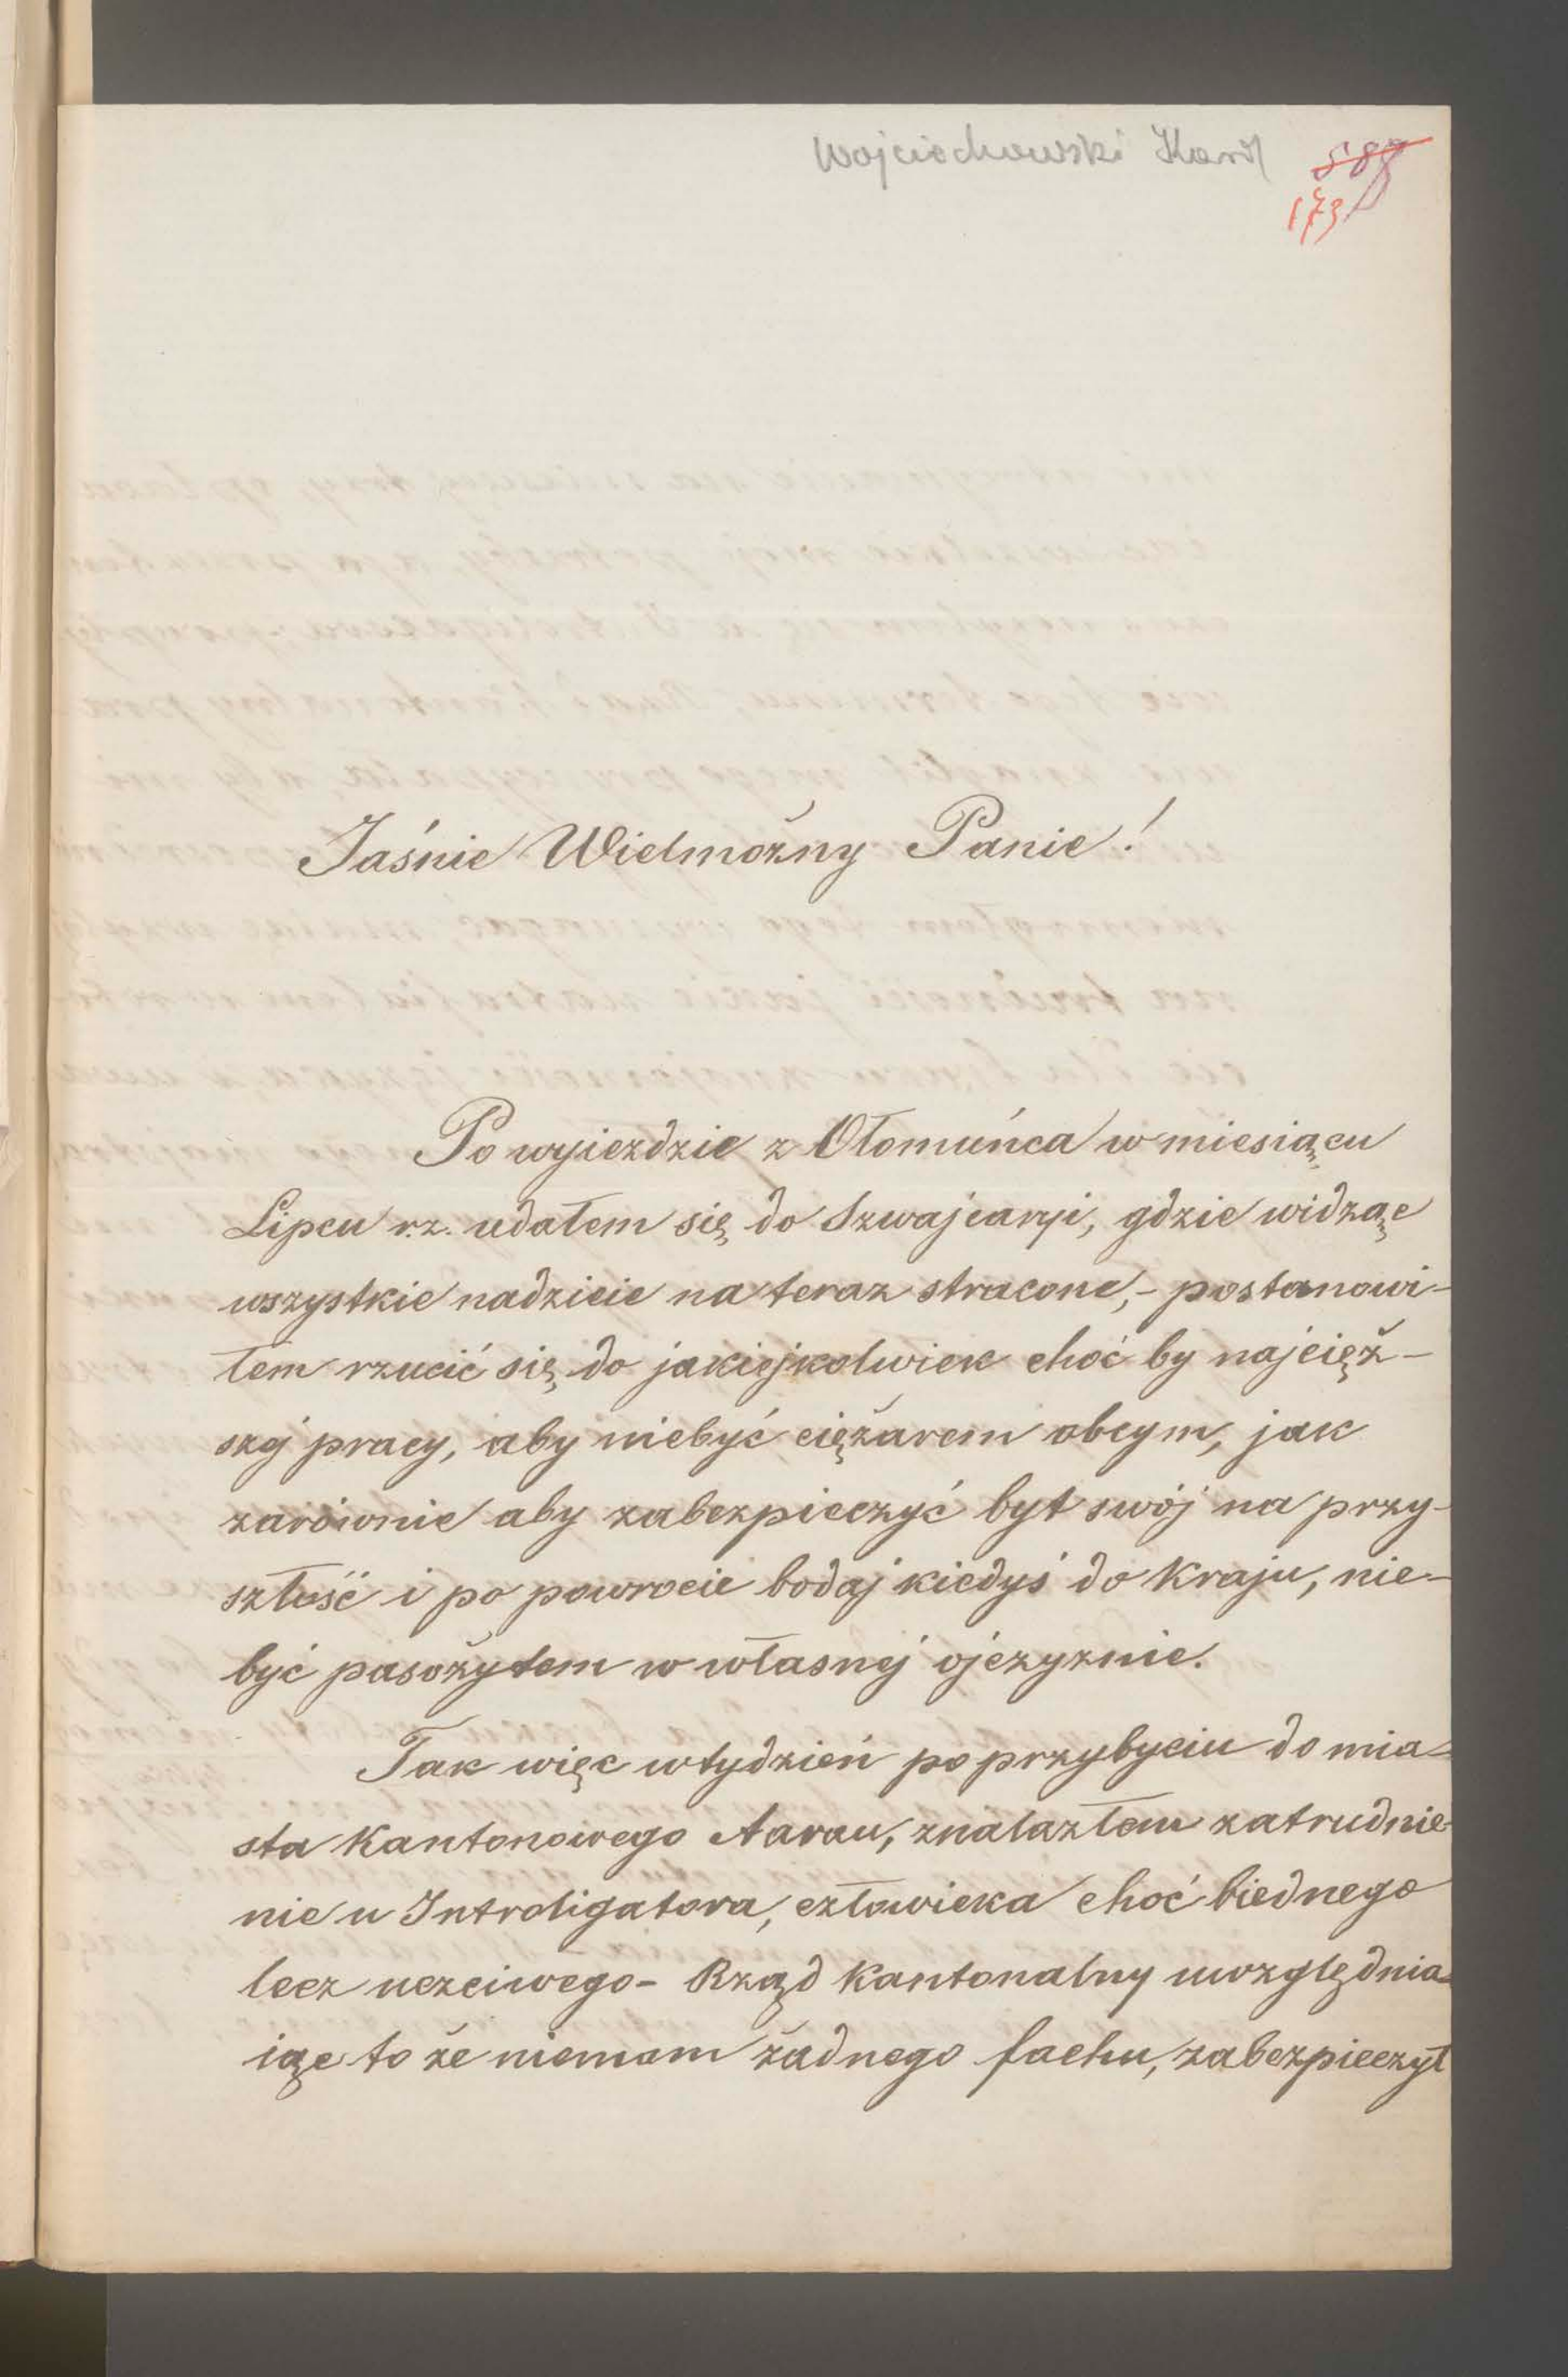 Wojciechowski Karol
588
173
Jaśnie Wielmożny Panie!
Po wyieździe z Ołomuńca w miesiącu
Lipcu r.z. udałem się do Szwajcaryi, gdzie widząc
wszystkie nadzieie na teraz stracone,- postanowi-
łem rzucić się do jakiejkolwiek choć by najcięż-
szej pracy, aby niebyć ciężarem obcym, jak
zarównie aby zabezpieczyć byt swój na przy-
szłość i po powrocie bodaj kiedyś do kraju, nie-
być pasożytem w własnej ojczyznie.
Tak więc w tydzień po przybyciu do mia-
sta Kantonowego Aarau, znalazłem zatrudnie-
nie u Introligatora, człowieka choć biednego
lecz uczciwego- Rząd Kantonalny uwzględnia-
iąc to że niemam żadnego fachu, zabezpieczył